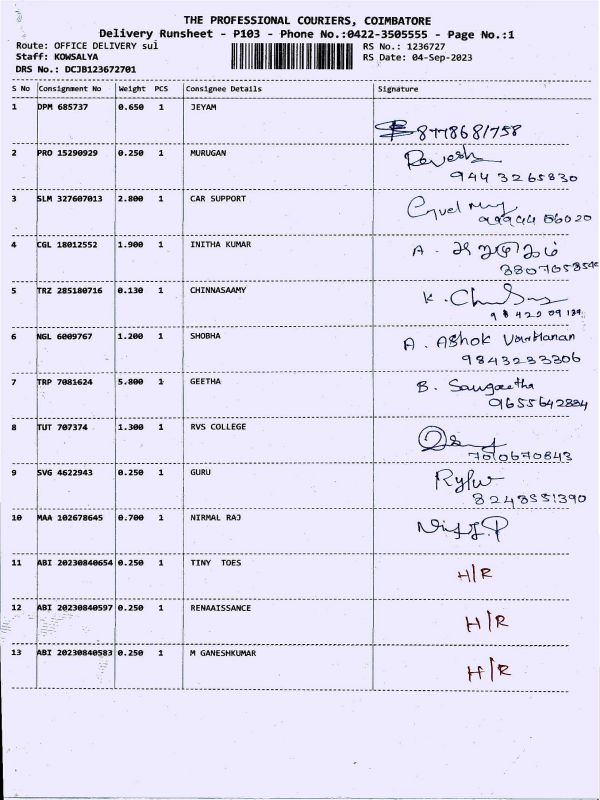 THE PROFESSIONAL COURIERS, COIMBATORE
Delivery Runsheet - P103 - Phone No.:0422-3505555 - Page No.:1
Route: OFFICE DELIVERY sul RS No.: 1236727
Staff: KOWSALYA RS Date: 04-Sep-2023
DRS No.: DCJB123672701
S No Consignment No Weight PCS Consignee Details Signature
1 DPM 685737 0.650 1 JEYAM
8778681758
2 PRO 15290929 0.250 1 MURUGAN
9443265830
3 SLM 327607013 2.800 1 CAR SUPPORT
4 CGL 18012552 1.900 1 INITHA KUMAR A.
5 TRZ 285180716 0.130 1 CHINNASAAMY K.
6 NGL 6009767 1.200 1 SHOBHA A. Ashok Vardhanan
9843233306
7 TRP 7081624 5.800 1 GEETHA B. Sangeetha
9655642884
8 TUT 707374 1.300 1 RVS COLLEGE
7010670843
9 SVG 4622943 0.250 1 GURU
8248551390
10 MAA 102678645 0.700 1 NIRMAL RAJ
11 ABI 20230840654 0.250 1 TINY TOES H/R
12 ABI 20230840597 0.250 1 RENAAISSANCE H/R
13 ABI 20230840583 0.250 1 M GANESHKUMAR H/R